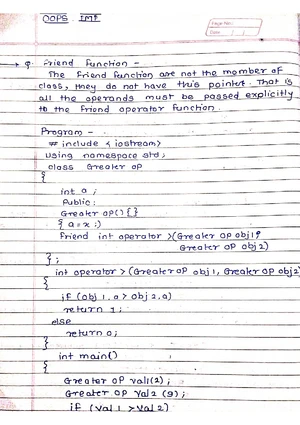 OOPS IMP
Page No.:
Date
→ Q. Friend Function -
The Friend function are not the member of
class, they do not have this pointer. That is
all the operands must be passed explicitly
to the Friend operator function.
Program -
# include < iostream>
using namespace std;
class Greater op
{
int a ;
Public:
Greater op() {}
{ a = x ;}
Friend int operator >(Greater op obj1,
Greater op obj 2)
} ;
int operator > (Greater op obj 1, Greater op obj 2)
{
if (obj 1 . a > obj 2. a)
return 1 ;
else
return 0;
}
int main()
{
Greater op val1(2) ;
Greater op val2 (9) ;
if (val 1 > val2)